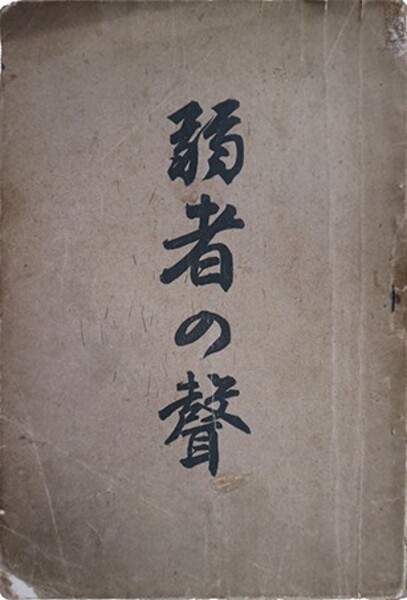 弱者の聲